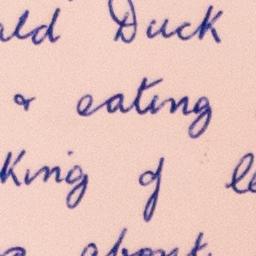 ald Duck
& eating
King of le
about